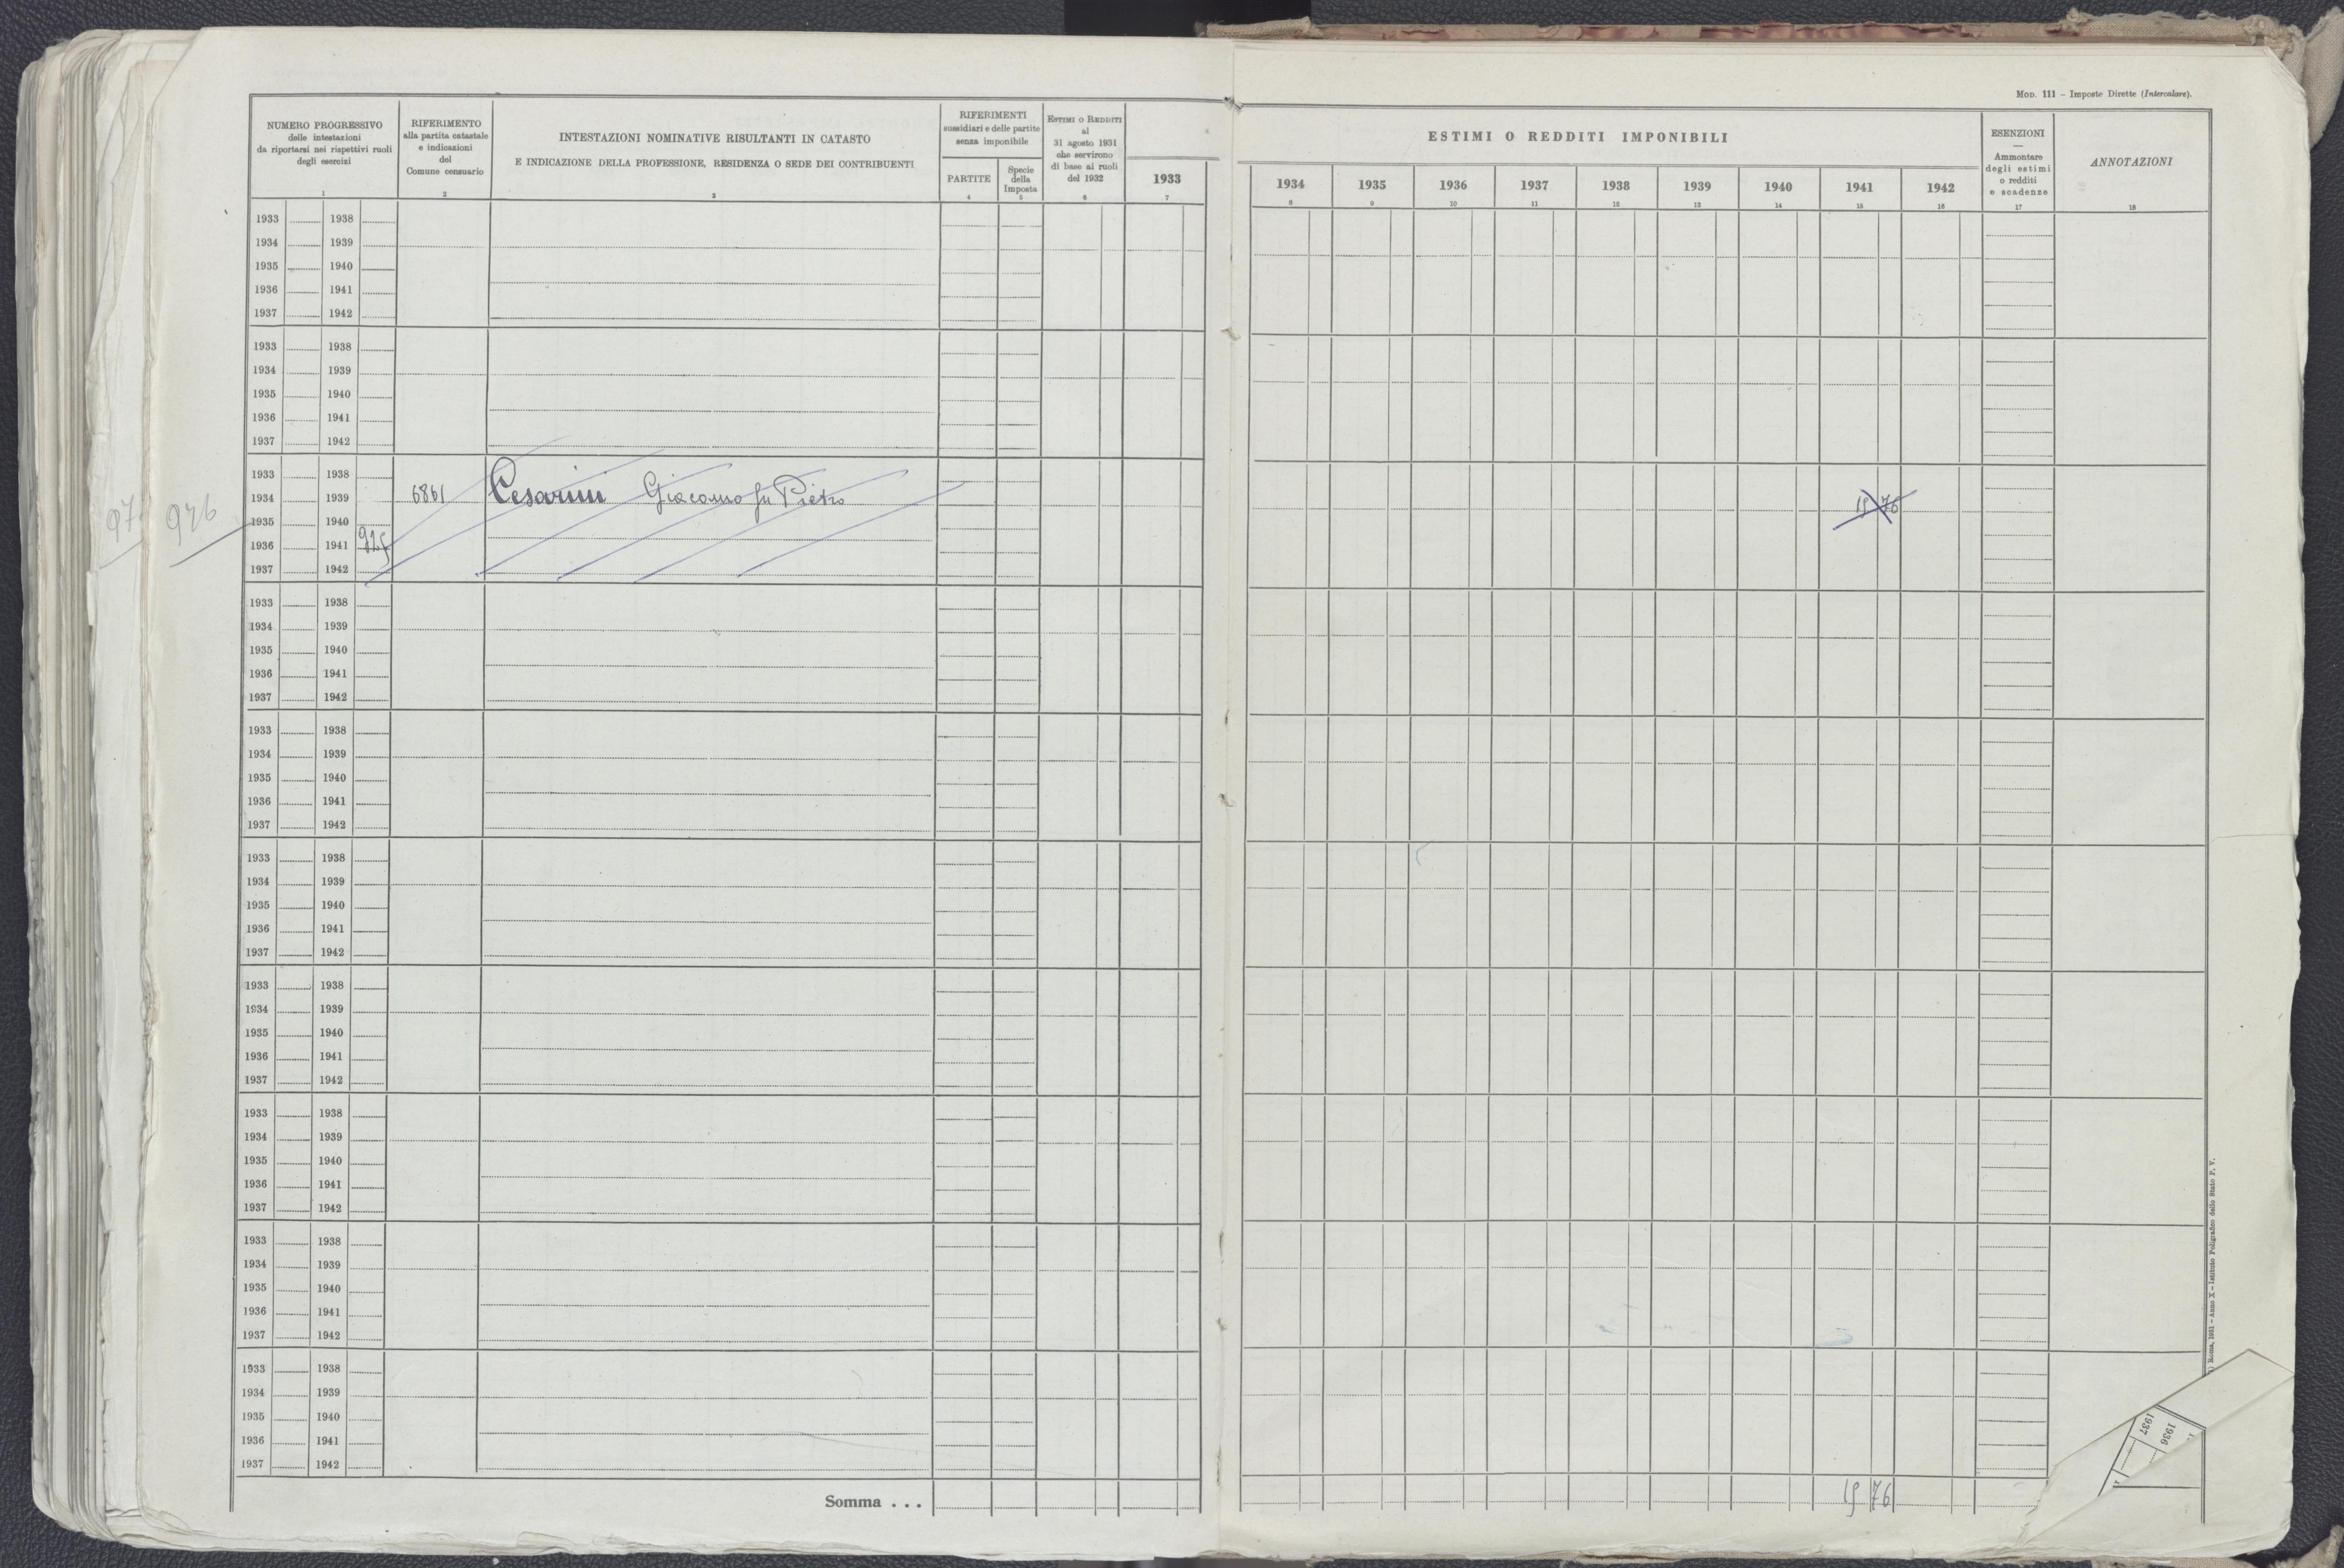 Mod. 111 – Imposte Dirette (Intercalare).
NUMERO PROGRESSIVO
delle intestazioni
da riportarsi nei rispettivi ruoli
degli esercizi
1
RIFERIMENTO
alla partita catastale
e indicazioni
del
Comune censuario
2
INTESTAZIONI NOMINATIVE RISULTANTI IN CATASTO
E INDICAZIONE DELLA PROFESSIONE, RESIDENZA O SEDE DEI CONTRIBUENTI
3
RIFERIMENTI
sussidiari e delle partite
senza imponibile
PARTITE
4
Specie
della
Imposta
5
Estimi o Redditi
al
31 agosto 1931
che servirono
di base ai ruoli
del 1932
6
1933
7
ESTIMI O REDDITI IMPONIBILI
1934 1935 1936 1937 1938 1939 1940 1941 1942
8 9 10 11 12 13 14 15 16
ESENZIONI
—
Ammontare
degli estimi
o redditi
e scadenze
17
ANNOTAZIONI
18
1933 1938
1934 1939
1935 1940
1936 1941
1937 1942
1933 1938
1934 1939
1935 1940
1936 1941
1937 1942
1933 1938
1934 1939 6861 Cesarini Giacomo fu Pietro 15 76
97 976 1935 1940
1936 1941 925
1937 1942
1933 1938
1934 1939
1935 1940
1936 1941
1937 1942
1933 1938
1934 1939
1935 1940
1936 1941
1937 1942
1933 1938
1934 1939
1935 1940
1936 1941
1937 1942
1933 1938
1934 1939
1935 1940
1936 1941
1937 1942
1933 1938
1934 1939
1935 1940
1936 1941
1937 1942
1933 1938
1934 1939
1935 1940
1936 1941
1937 1942
1933 1938
1934 1939
1935 1940
1936 1941
1937 1942
Somma . . . 15 76
Roma, 1931 – Anno X – Istituto Poligrafico dello Stato P. V.
1936
1937